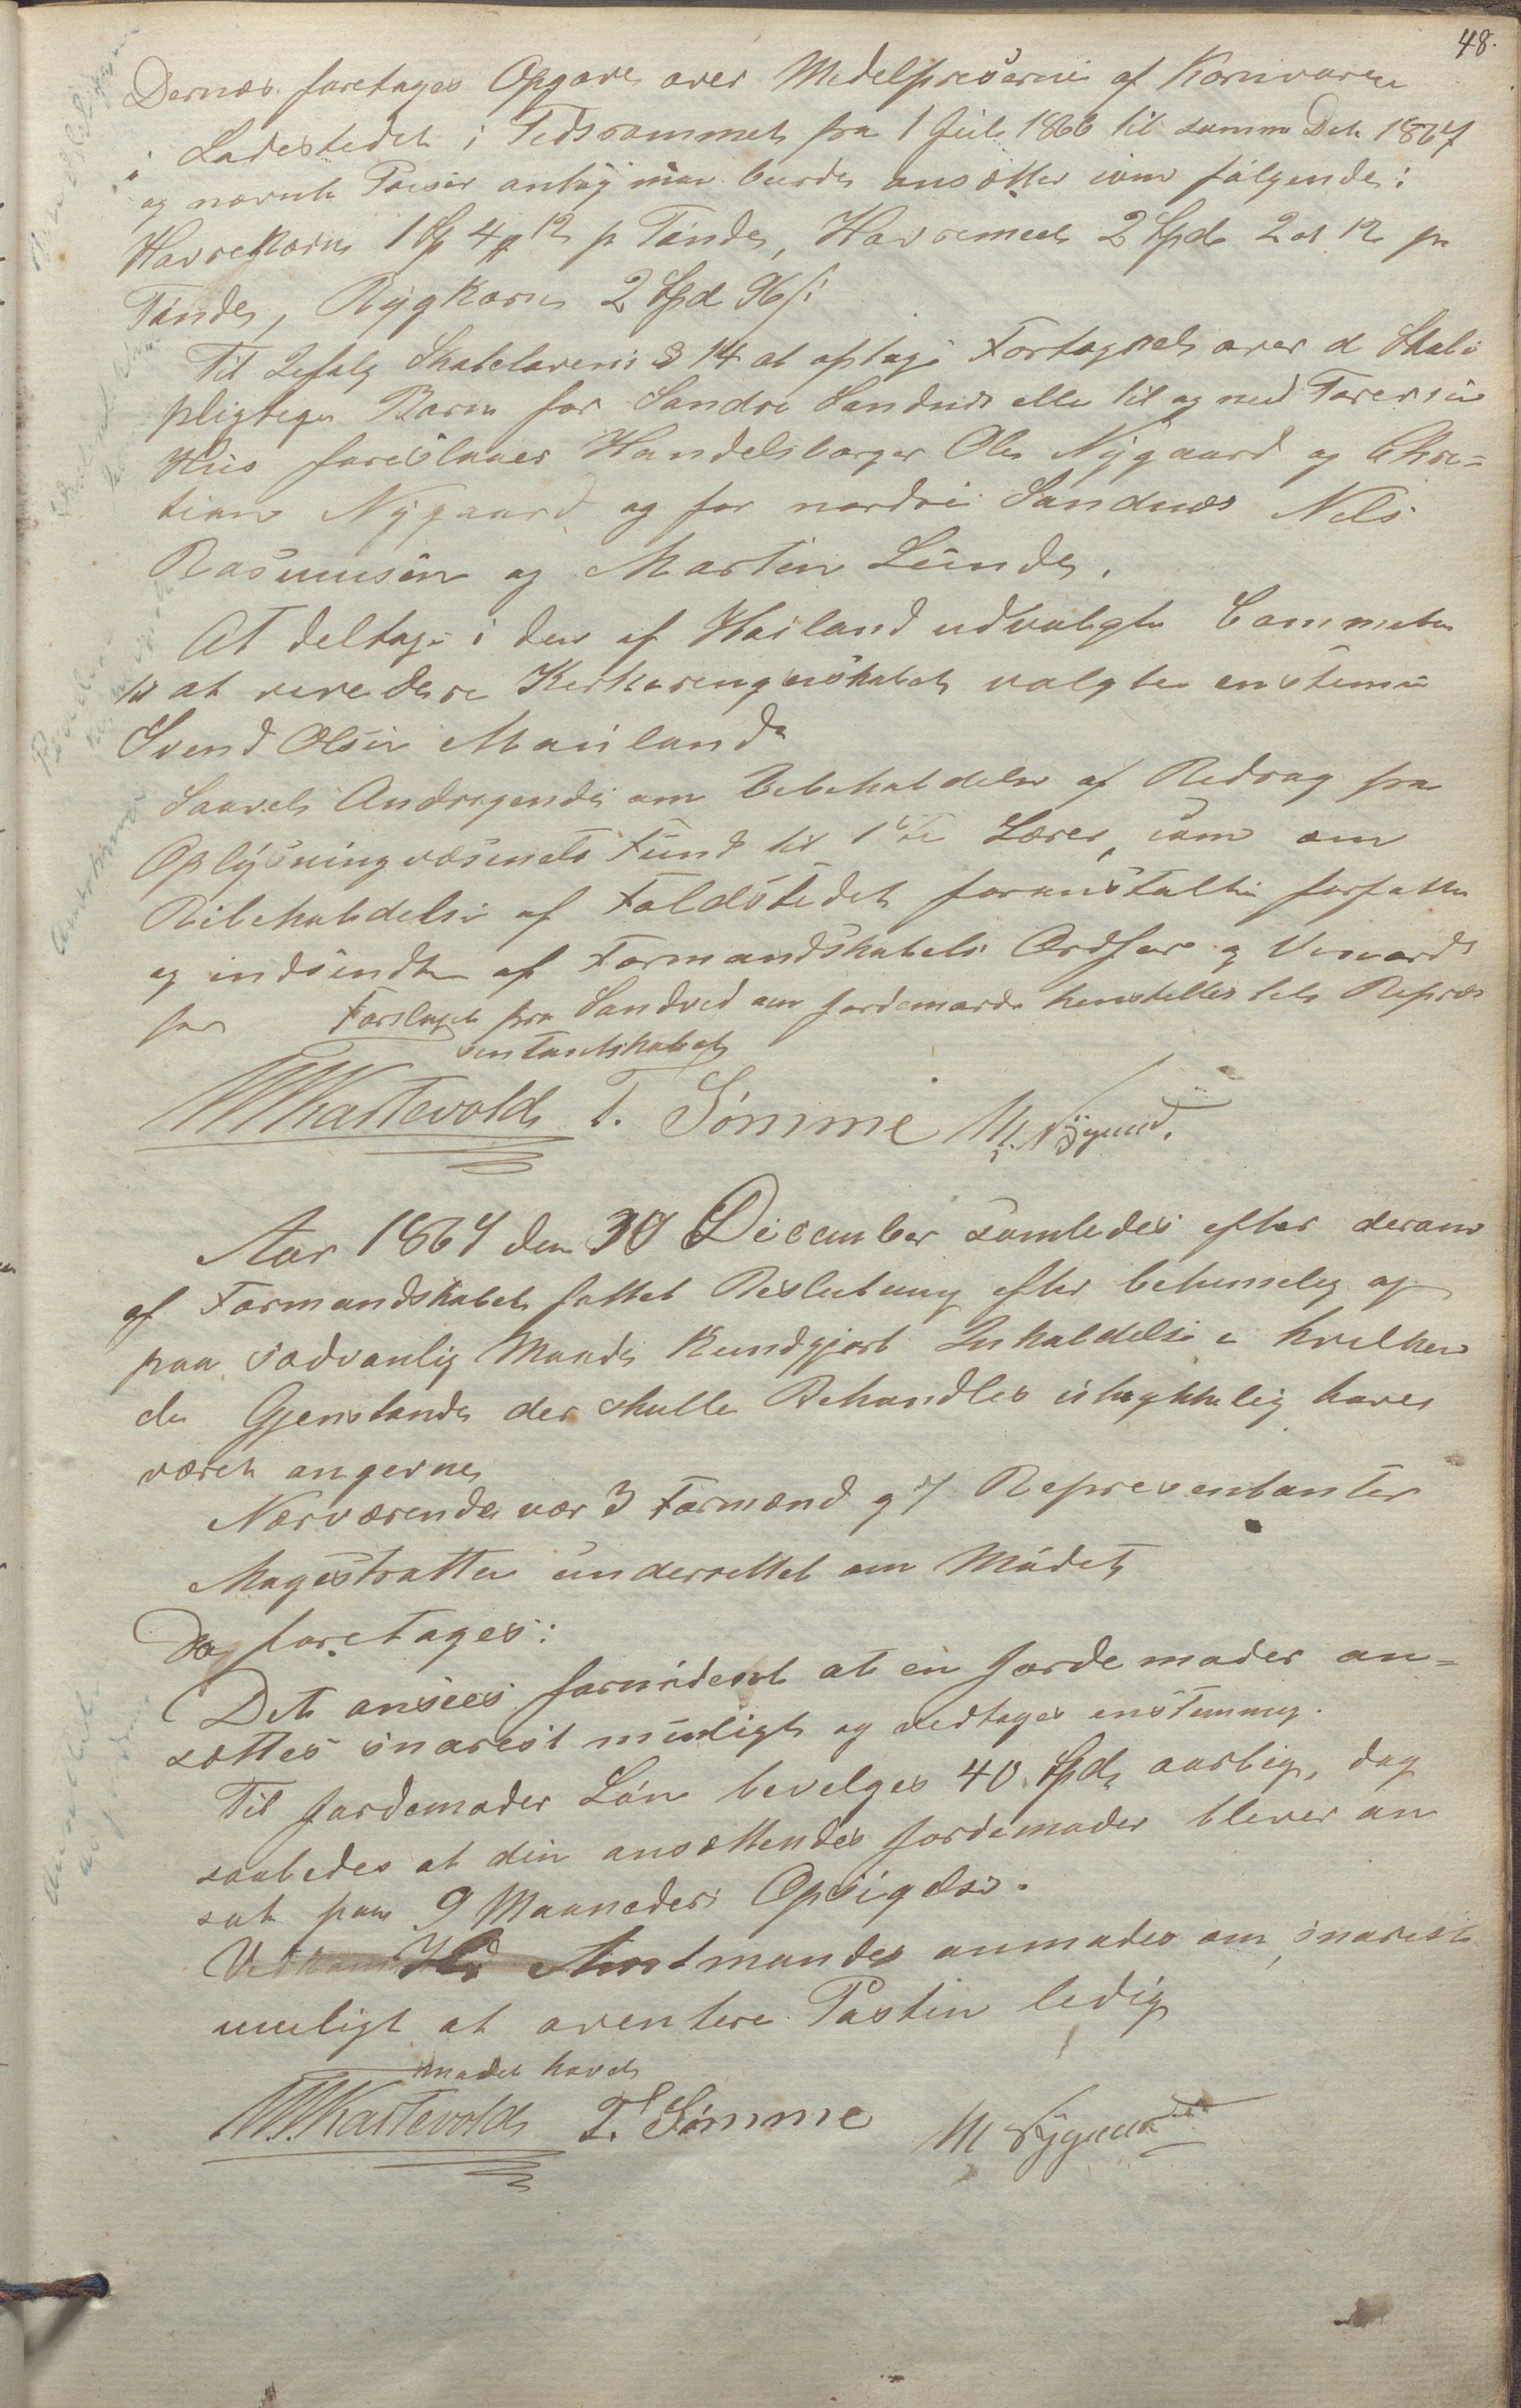 48.
Dernæs foretages Opgave over Medelpriserne af Kornvarer
i Ladestedet i Tedsrommet fra 1 Juli 1866 til samme Dato 1867
og nævnte Priser antog man burde ansættes som følgende:
Havrekorn 1 Sp 4 12 pr Tønde, Havremeel 2 Spd 2 ot 12 pr
Tønde, Rygkorn 2 Spd 96 s
Til Følge Skolelovens § 14 at optage Fortegnels over d Skole
pligtige Barn for Søndre Sandnæs elle til og med
Huus foreslaaes Handelsborger Ole Nygaard og Chris=
tian Nygaard og for nordre Sandnæs Nels
Rasmusen og Martin Lunde.
At deltage i den af Høiland udvalgte Commete
til at revedere Kerkeregnskabet valgtes enstemmi
Svend Olsen Mauland
Saavel Andragende om Bebeholdelse af Bedrag fra
Oplysningvæsenets Fund til 1ste Lærer, som om
Bibeholdelse af Toldstedet foranstaltes forfattet
og indsendt af Formandskabets Ordfører g
for Forslaget fra Sandved om Jordemorde henstilles til Repræs
entantskabet
Kastevold T. Sømme M. Nygaard.
Aar 1867 den 30 December samledes efter derom
af Formandskabet fattet Beslutning efter betimelig og
paa sædvanlig Maade kundgjort Inkaldelse i hvilken
de Gjenstande der skulle Behandles udtrykkelig haver
været angevne
Nærværende var 3 Formænd g 7 Representanter
Magistratten underrettet om Mødet
Da foretages:
Det ansees fornødent at en Jordemoder an=
sættes snarest muligt og vedtages enstemmig.
Til Jordemoder Løn bevelges 40 Spd aarlig, dog
saaledes at den ansættendes Jordemoder blever an
sat paa 9 Maaneders Opsigelse.
Hr Amtmanden anmodes om snarest
muligt at avertere Posten ledig
Mødet hævet
Kastevold T. Sømme M Nygaard